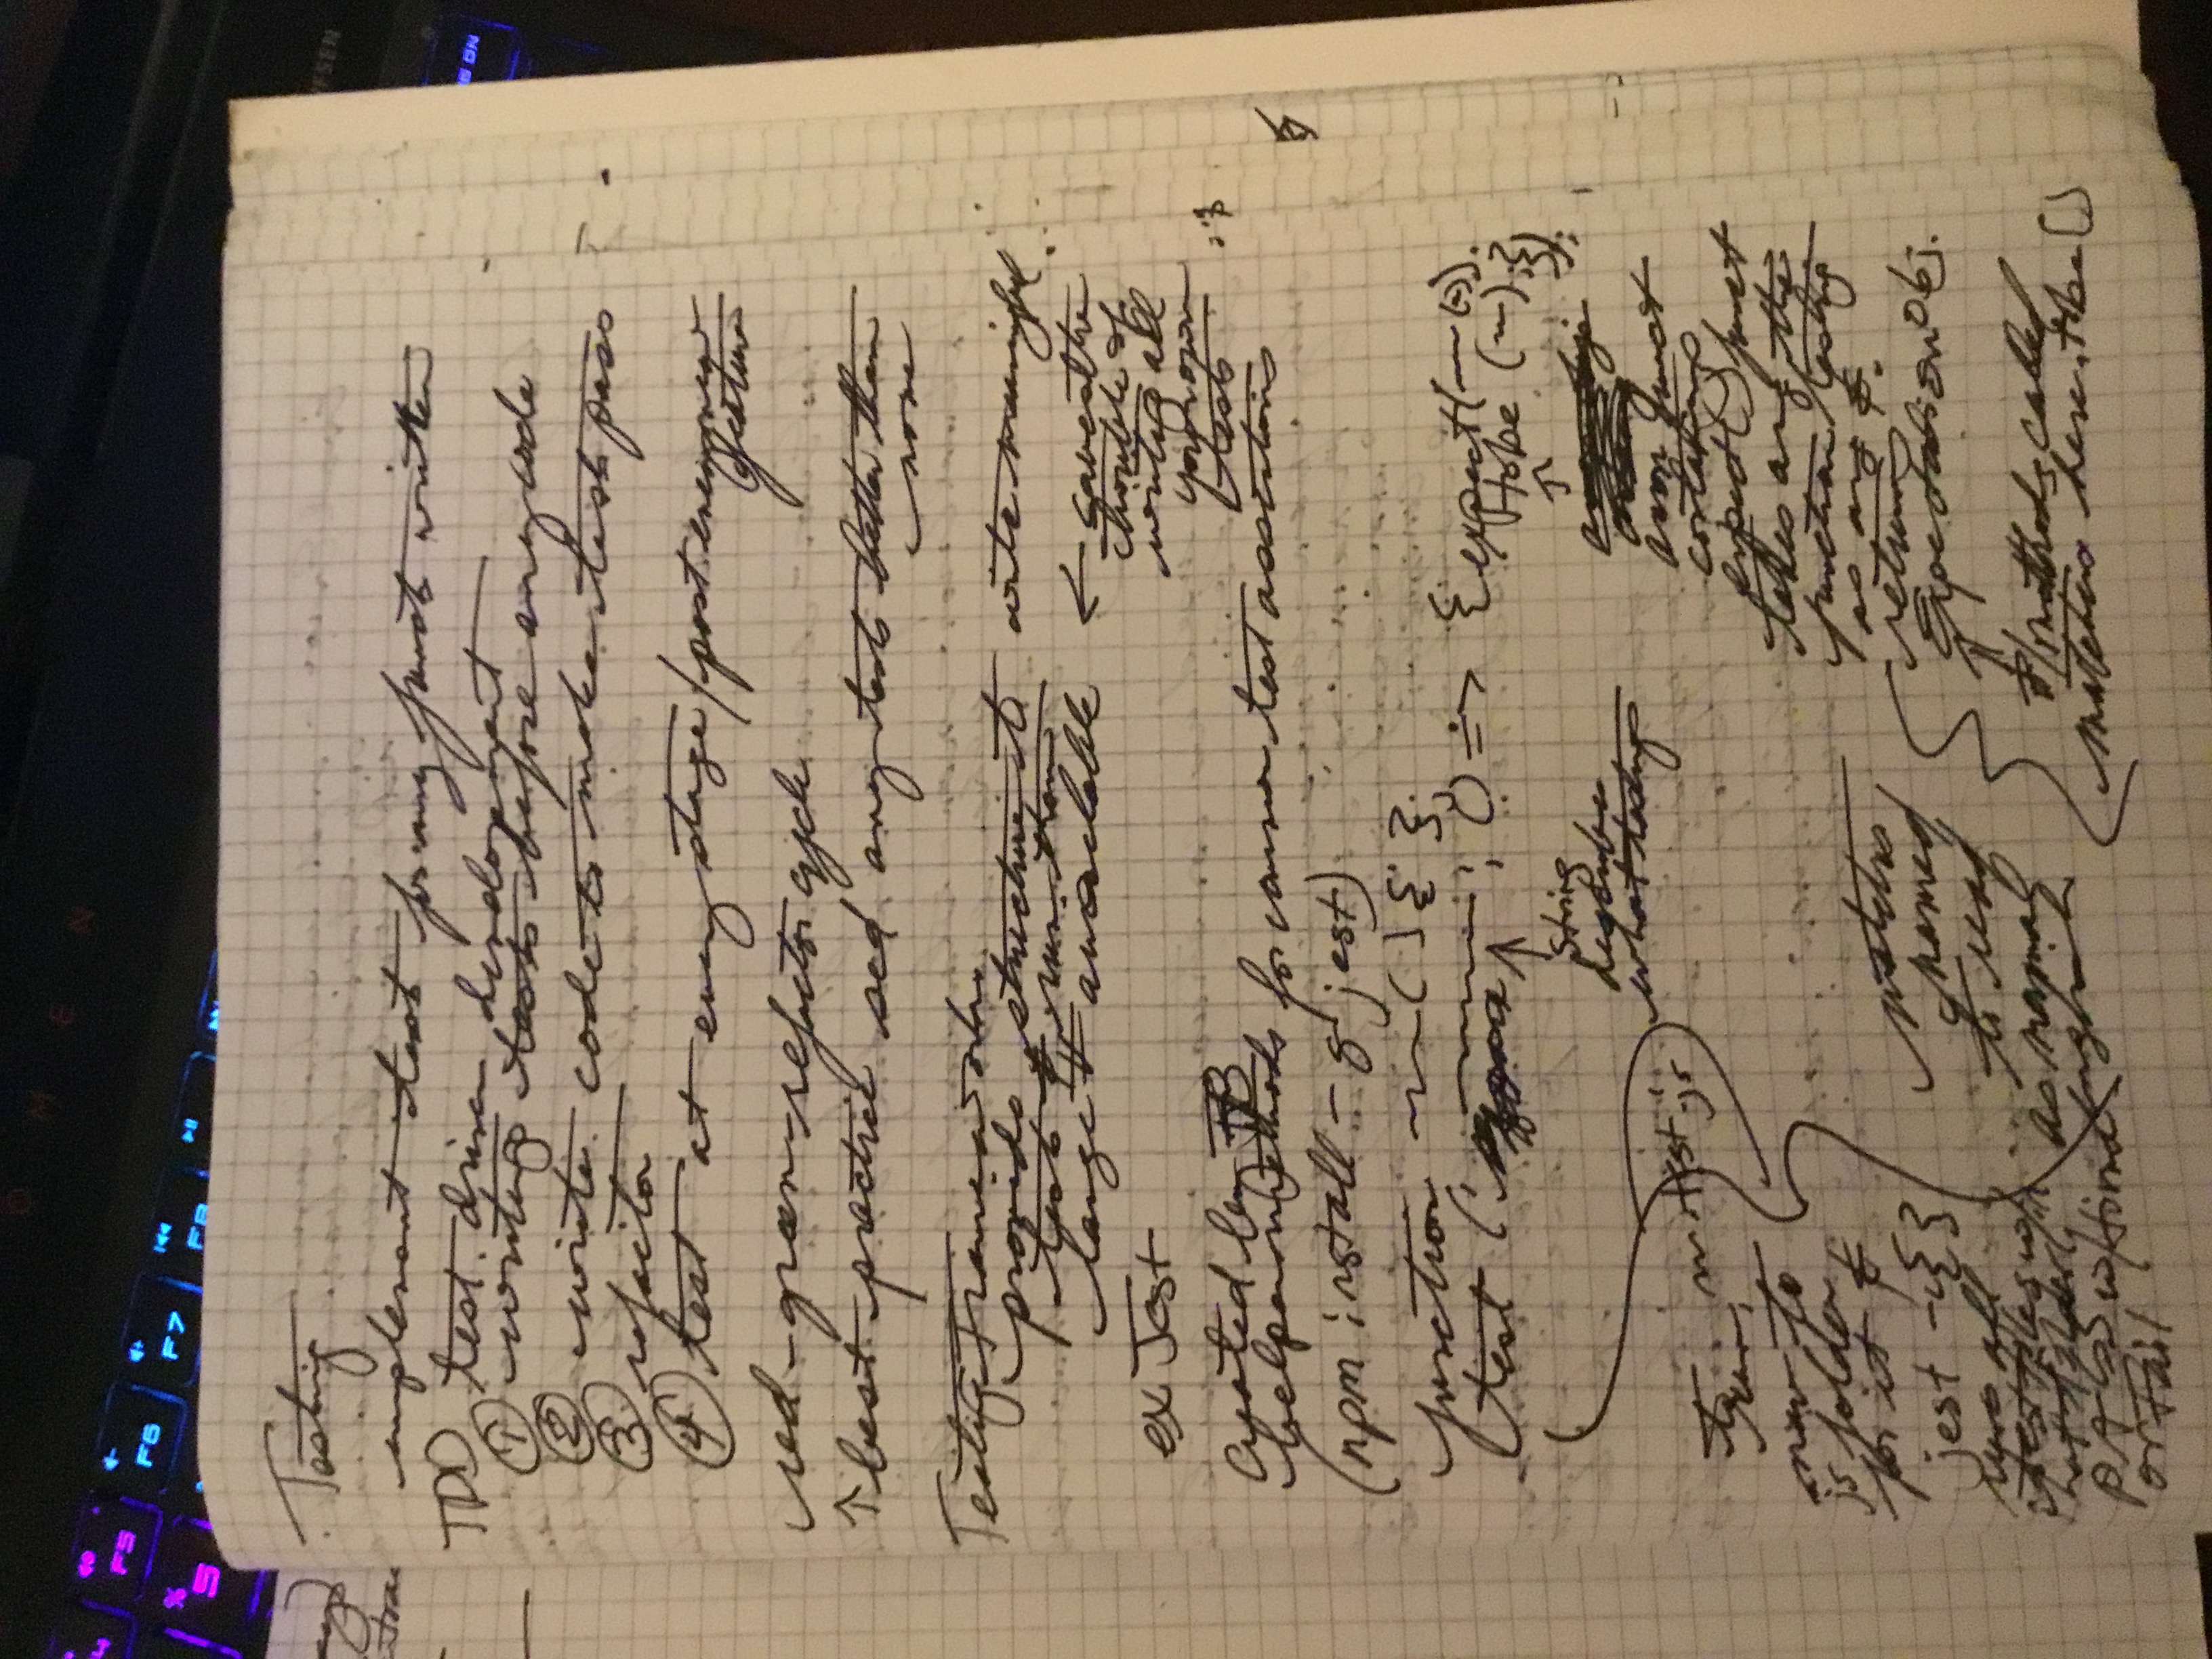 OMEN
F5
F6
F7
F8
%
5
Testing
implement tests for any functs written
TDD test driven development
① writing tests before any code
② write code to make tests pass
③ refactor
④ test at every stage/post every new
feature
red-green-refactor cycle
↑ best practice sed any tests better than
none
Testing Frameworks
provide structure to write meaningful
tests & run them
large # available ← saves the
trouble of
writing all
your own
tests
ex Jest
created by FB
helper methods for common test assertions
(npm install -g jest)
function ~~() { };
test (' ', () => { expect(~~()).
tobe (~).;});
↑
string
describes
what testing
↑
anon funct
containing
expect() funct
takes arg the
function testing
as arg &
returns
Expectation obj.
↑
methods called
matchers here .tobe()
matchers
named
to read
as normal
english
~.test.js
to run,
nav to
js folder
for it &
jest -{}
runs all
test files w/in
that folder
PASS w/time
or Fail